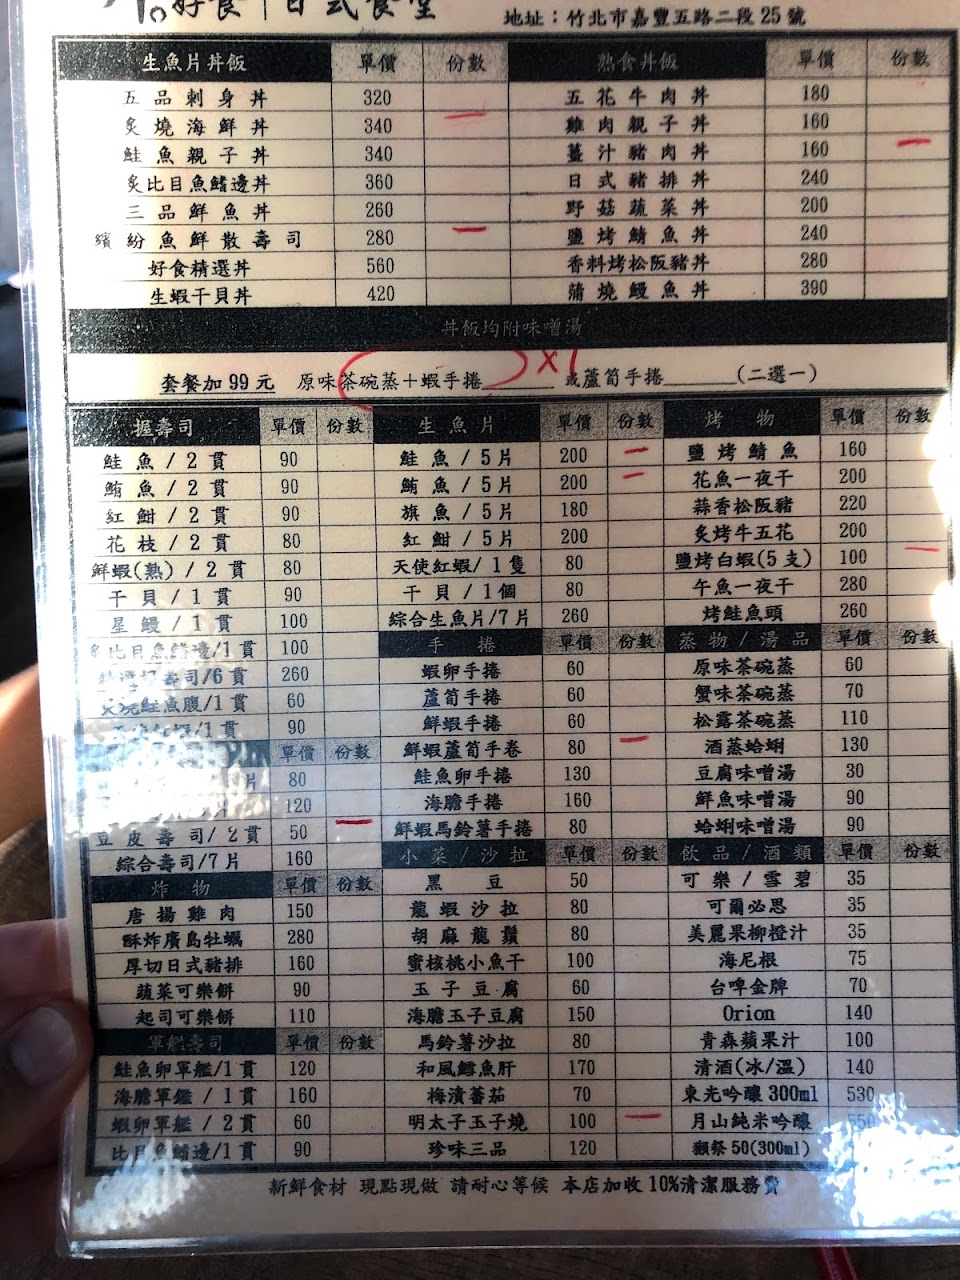 好食 日式食堂
地址：竹北市嘉豐五路二段25號
生魚片丼飯 單價 份數 熟食丼飯 單價 份數
五品刺身丼 320 五花牛肉丼 180
炙燒海鮮丼 340 一 雞肉親子丼 160
鮭魚親子丼 340 薑汁豬肉丼 160 一
炙比目魚鰭邊丼 360 日式豬排丼 240
三品鮮魚丼 260 野菇蔬菜丼 200
繽紛魚鮮散壽司 280 一 鹽烤鯖魚丼 240
好食精選丼 560 香料烤松阪豬丼 280
生蝦干貝丼 420 蒲燒鰻魚丼 390
丼飯均附味噌湯
套餐加99元 原味茶碗蒸+蝦手捲 x1 或蘆筍手捲 (二選一)
握壽司 單價 份數 生魚片 單價 份數 烤物 單價 份數
鮭魚/2貫 90 鮭魚/5片 200 一 鹽烤鯖魚 160
鮪魚/2貫 90 鮪魚/5片 200 一 花魚一夜干 220
紅魽/2貫 90 旗魚/5片 180 蒜香松阪豬 220
花枝/2貫 80 紅魽/5片 200 炙烤牛五花 200
鮮蝦(熟)/2貫 80 天使紅蝦/1隻 80 鹽烤白蝦(5支) 100 一
干貝/1貫 90 干貝/1個 80 午魚一夜干 280
星鰻/1貫 100 綜合生魚片/7片 260 烤鮭魚頭 260
炙比目魚鰭邊/1貫 100 手捲 單價 份數 蒸物/湯品 單價 份數
壽司/6貫 260 蝦卵手捲 60 原味茶碗蒸 60
炙燒鮭魚腹/1貫 60 蘆筍手捲 60 蟹味茶碗蒸 70
/1貫 90 鮮蝦手捲 60 松露茶碗蒸 110
單價 份數 鮮蝦蘆筍手卷 80 一 酒蒸蛤蜊 130
片 80 鮭魚卵手捲 130 豆腐味噌湯 30
120 海膽手捲 160 鮮魚味噌湯 90
豆皮壽司/2貫 50 一 鮮蝦馬鈴薯手捲 80 蛤蜊味噌湯 90
綜合壽司/7片 160 小菜/沙拉 單價 份數 飲品/酒類 單價 份數
炸物 單價 份數 黑豆 50 可樂/雪碧 35
唐揚雞肉 150 龍蝦沙拉 80 可爾必思 35
酥炸廣島牡蠣 280 胡麻龍鬚 80 美麗果柳橙汁 35
厚切日式豬排 160 蜜核桃小魚干 100 海尼根 75
蔬菜可樂餅 90 玉子豆腐 60 台啤金牌 70
起司可樂餅 110 海膽玉子豆腐 150 Orion 140
軍艦壽司 單價 份數 馬鈴薯沙拉 80 青森蘋果汁 100
鮭魚卵軍艦/1貫 120 和風鱈魚肝 170 清酒(冰/溫) 140
海膽軍鑑/1貫 160 梅漬蕃茄 70 東光吟釀300ml 530
蝦卵軍艦/2貫 60 明太子玉子燒 100 一 月山純米吟釀 550
比目魚鰭邊/1貫 90 珍味三品 120 獺祭50(300ml)
新鮮食材 現點現做 請耐心等候 本店加收10%清潔服務費